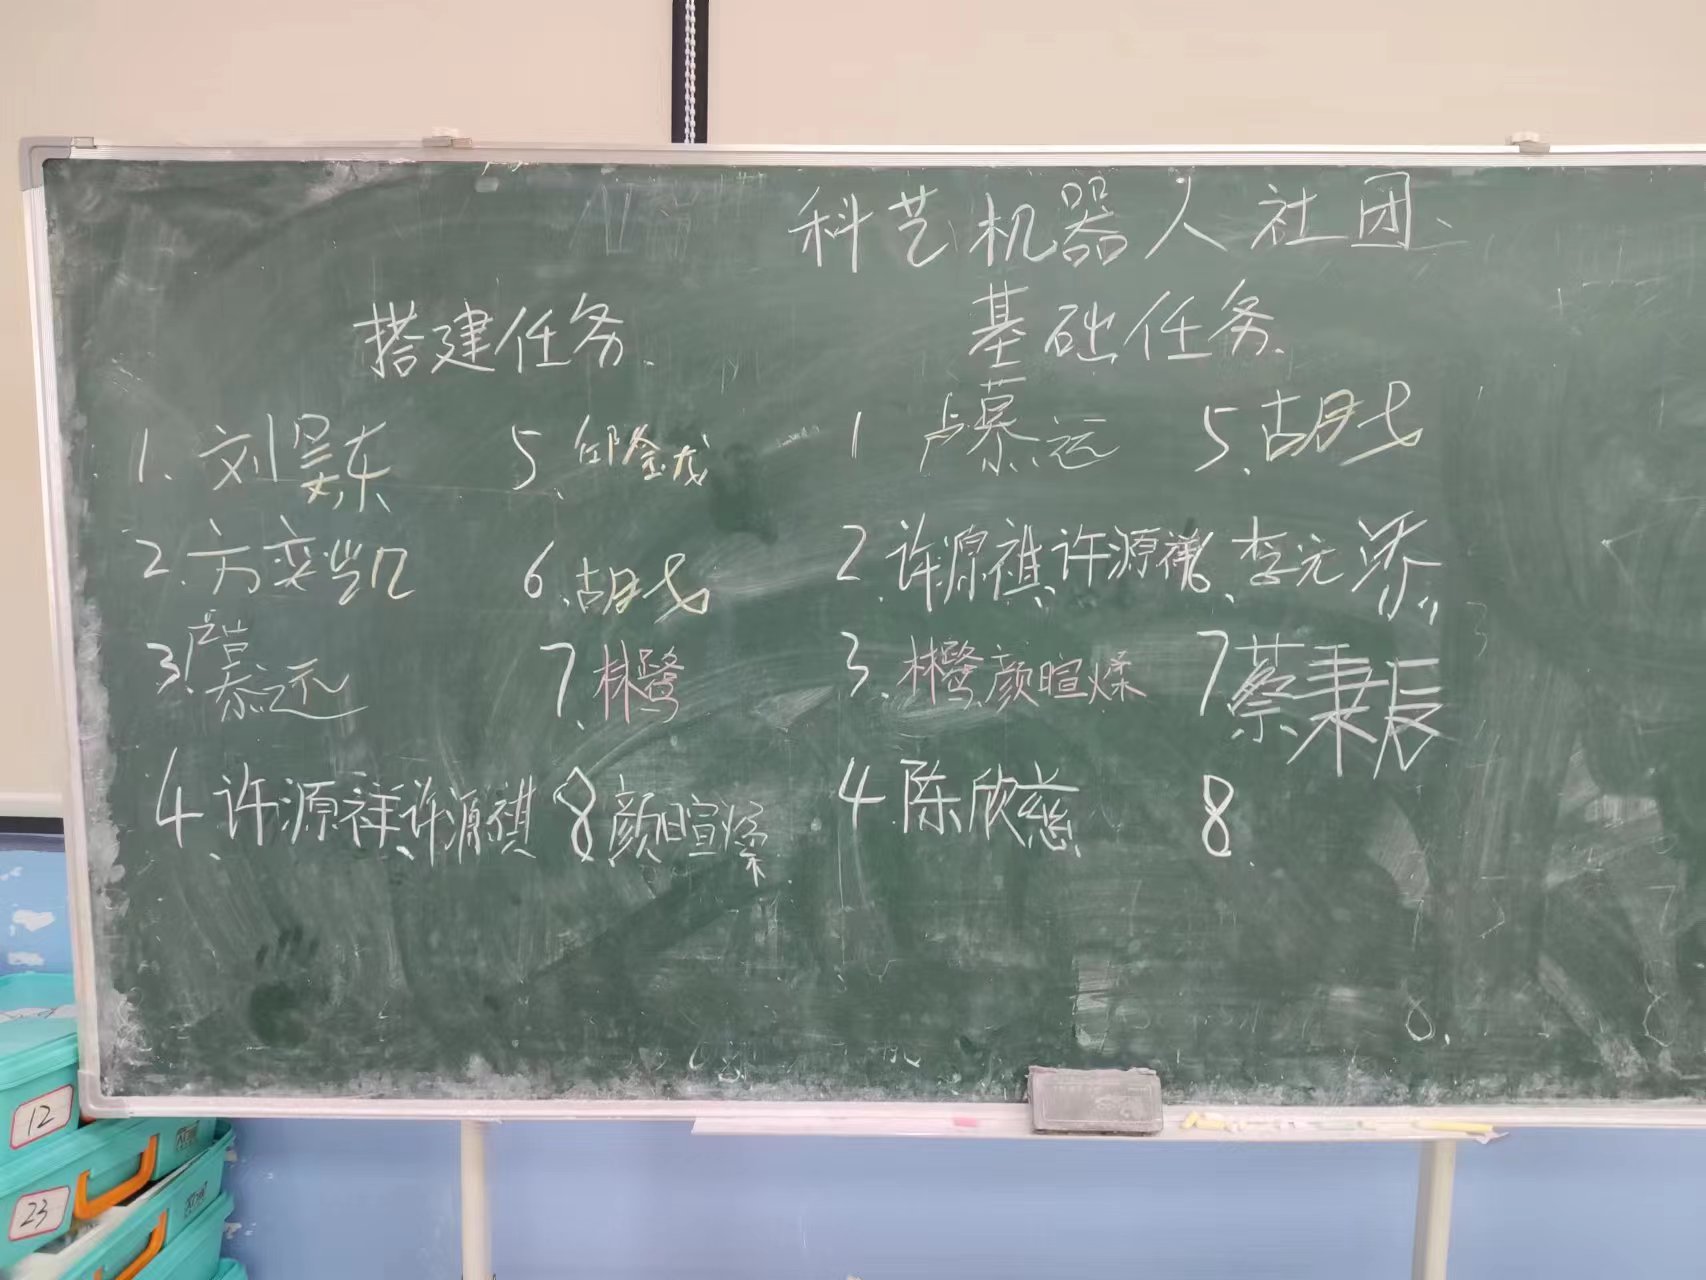 科艺机器人社团
搭建任务 基础任务
1. 刘昊东 5、邱金成 1 卢慕远 5、胡戈
2. 方奕凯 6、胡戈 2、许源祺、许源祥、李元添
3. 卢慕远 7、林鹭 3、林鹭、颜暄燦 7 蔡秉辰
4、许源祥、许源祺 8 颜暄燦 4 陈欣慈 8.
12
23